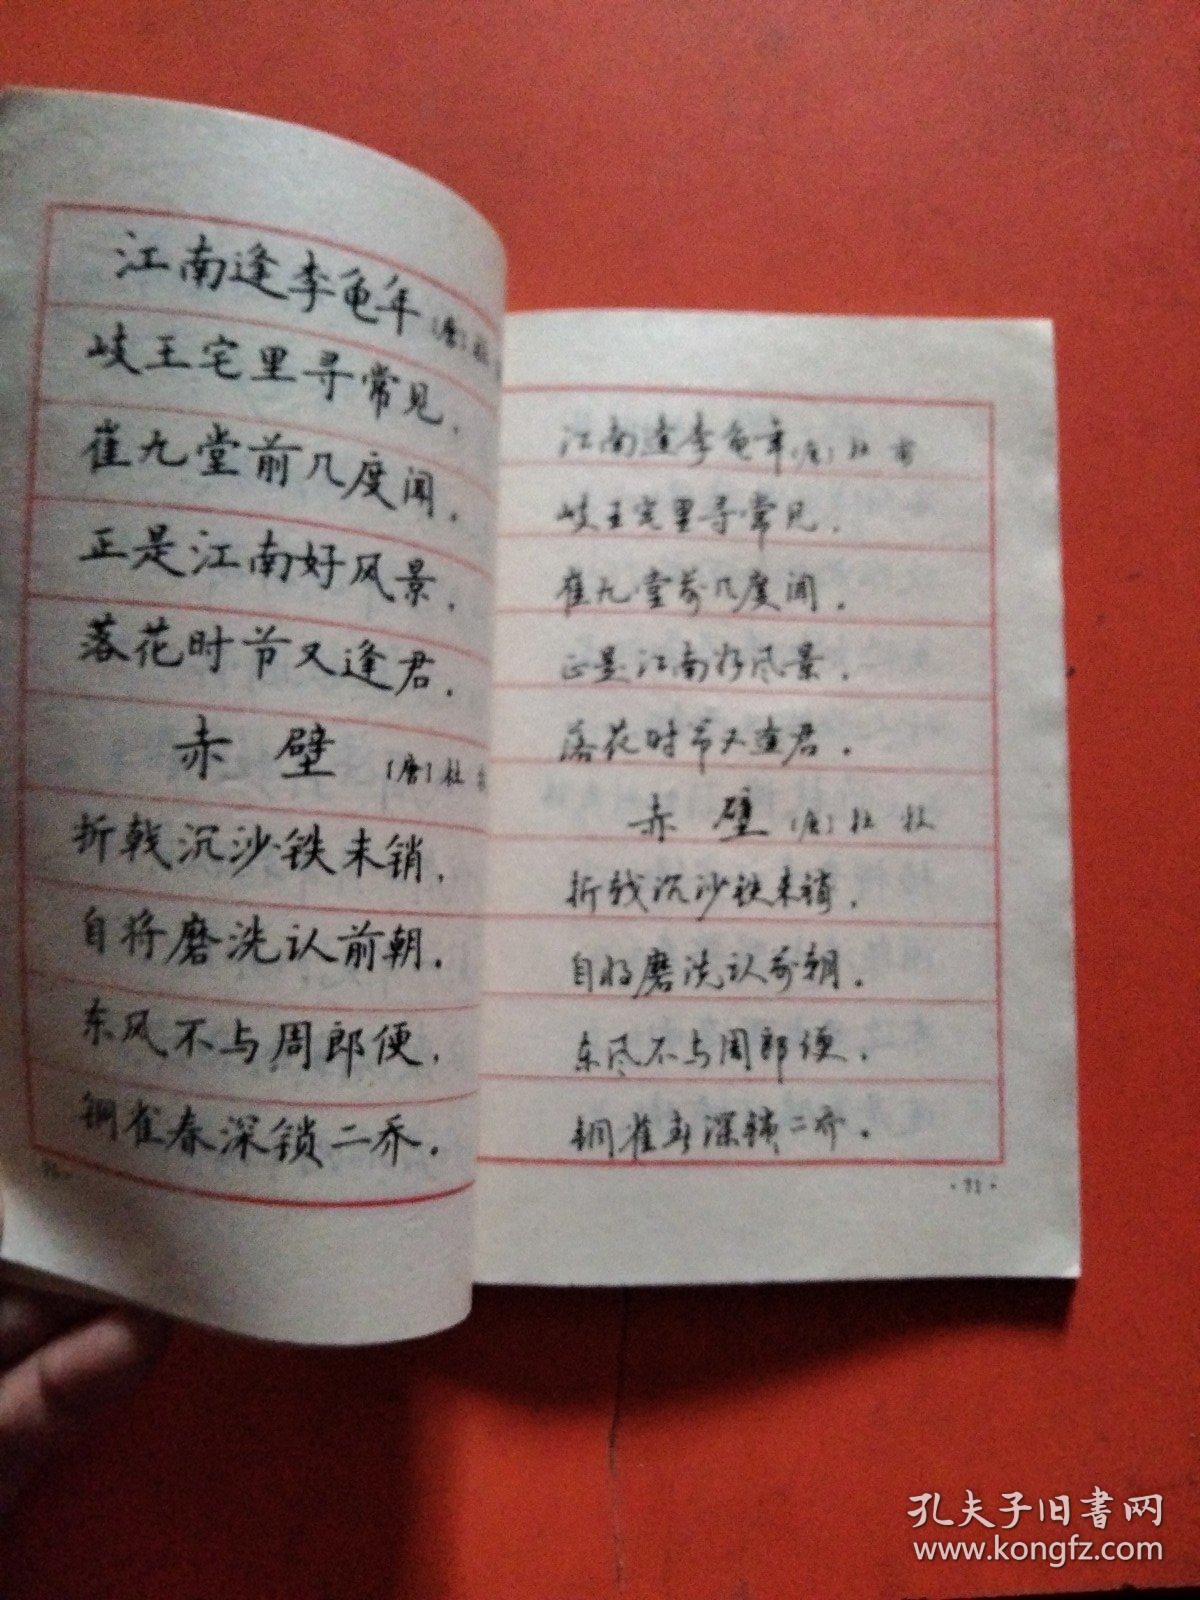 江南逢李龟年〔唐〕杜
岐王宅里寻常见，
崔九堂前几度闻。
正是江南好风景，
落花时节又逢君。
赤壁〔唐〕杜
折戟沉沙铁未销，
自将磨洗认前朝。
东风不与周郎便，
铜雀春深锁二乔。
江南逢李龟年〔唐〕杜甫
岐王宅里寻常见，
崔九堂前几度闻。
正是江南好风景，
落花时节又逢君。
赤壁〔唐〕杜牧
折戟沉沙铁未销，
自将磨洗认前朝。
东风不与周郎便，
铜雀春深锁二乔。
孔夫子旧书网
www.kongfz.com